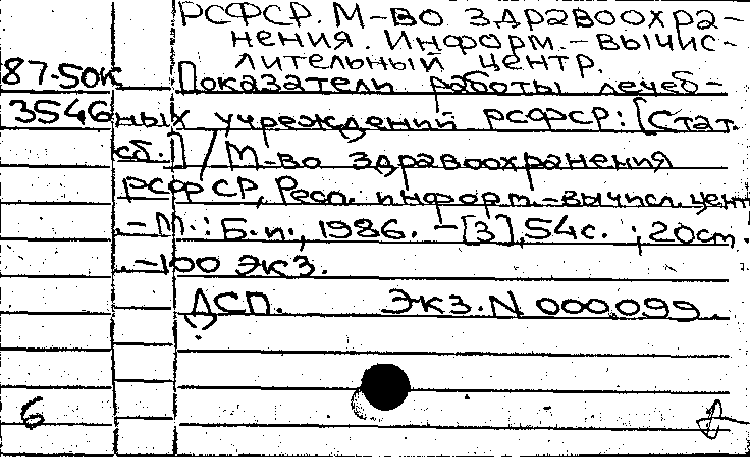 РСФСР. М-во здравоохра-
нения. Информ.-вычис-
лительный центр.
87-50к Показатели работы лечеб-
3546 ных учреждений РСФСР: [Стат.
сб.] / М-во здравоохранения
РСФСР, Респ. информ.-вычисл. цент
. - М.: Б.и., 1986. - [3], 54 с. ; 20 см.
. - 100 экз.
ДСП. Экз. N 000099.
6